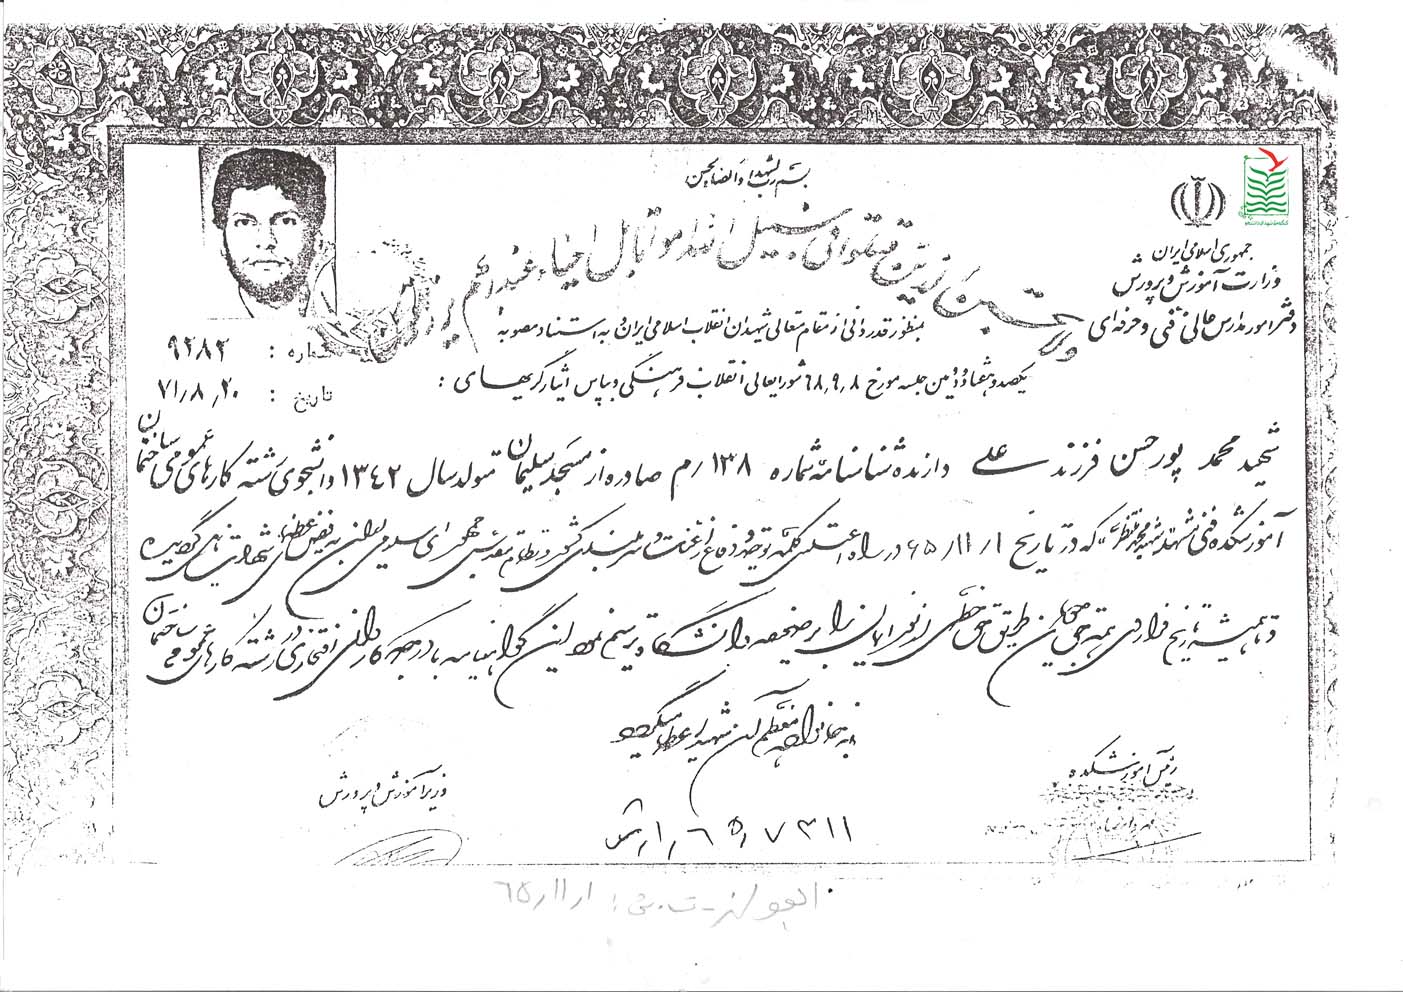 بسم رب الشهداء والصالحین
ولا تحسبن الذین قتلوا فی سبیل الله امواتا بل احیاء عند ربهم یرزقون
جمهوری اسلامی ایران
وزارت آموزش و پرورش
دفتر امور مدارس عالی فنی و حرفه‌ای
شماره : ۹۲۸۲
تاریخ : ۷۱٫۸٫۲۰
بمنظور قدردانی از مقام متعالی شهیدان انقلاب اسلامی ایران و به استناد مصوبهٔ
یکصد و هفتاد و دومین جلسه مورخ ۶۸٫۹٫۸ شورایعالی انقلاب فرهنگی و بپاس ایثارگریهای :
شهید محمد پورحسن فرزند علی دارنده شناسنامه شماره ۱۳۸ رم صادره از مسجد سلیمان متولد سال ۱۳۴۲ دانشجوی رشته کارهای عمومی ساختمان
آموزشکده فنی شهید محمد منتظری که در تاریخ ۶۵٫۱۱٫۱ در راه اعتلای کلمه توحید و دفاع از و نظام مقدس جمهوری اسلامی ایران به فیض عظمای شهادت نایل گردیده
و همیشه تاریخ فرا روی همه حق جویان طریق حق خطی از نور ایمان را بر صحیفه دانشگاه ترسیم نمود این گواهینامه با درجه کاردانی افتخاری در رشته کارهای عمومی ساختمان
به خانواده معظم آن شهید اعطا میگردد
رئیس آموزشکده
وزیر آموزش و پرورش
۶۵٫۷۳۱۱
۶۵٫۱۱٫۱